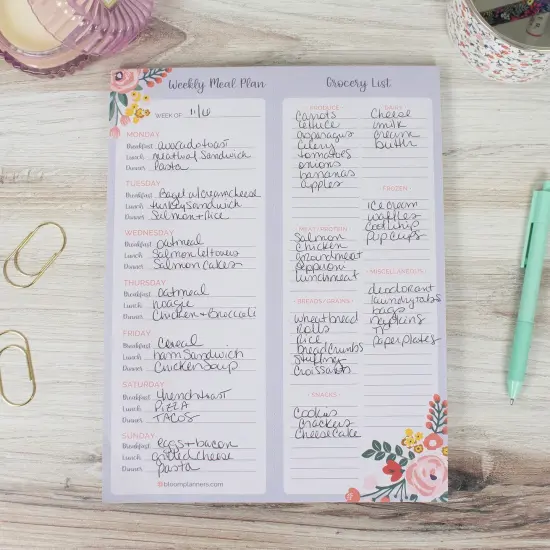 Weekly Meal Plan
WEEK OF
MONDAY
Breakfast avocado toast
Lunch meatloaf Sandwich
Dinner Pasta
TUESDAY
Breakfast Bagel w/creamcheese
Lunch turkey Sandwich
Dinner Salmon + Rice
WEDNESDAY
Breakfast oatmeal
Lunch Salmon leftovers
Dinner Salmon Cakes
THURSDAY
Breakfast oatmeal
Lunch hoagie
Dinner Chicken + Broccoli
FRIDAY
Breakfast Cereal
Lunch ham Sandwich
Dinner Chicken Soup
SATURDAY
Breakfast french toast
Lunch PIZZA
Dinner TACOS
SUNDAY
Breakfast eggs + bacon
Lunch grilled cheese
Dinner pasta
@bloomplanners.com
Grocery List
PRODUCE
Carrots
lettuce
asparagus
Celery
tomatoes
onions
bananas
apples
MEAT / PROTEIN
Salmon
Chicken
Groundmeat
Pepperoni
lunchmeat
BREADS / GRAINS
Wheat bread
Rolls
Rice
breadcrumbs
Stuffing
Croissants
SNACKS
Cookies
Crackers
CheeseCake
DAIRY
Cheese
milk
cream
FROZEN
ice cream
waffles
Cool whip
MISCELLANEOUS
deodorant
laundry tabs
bags
napkins
TP
paper plates